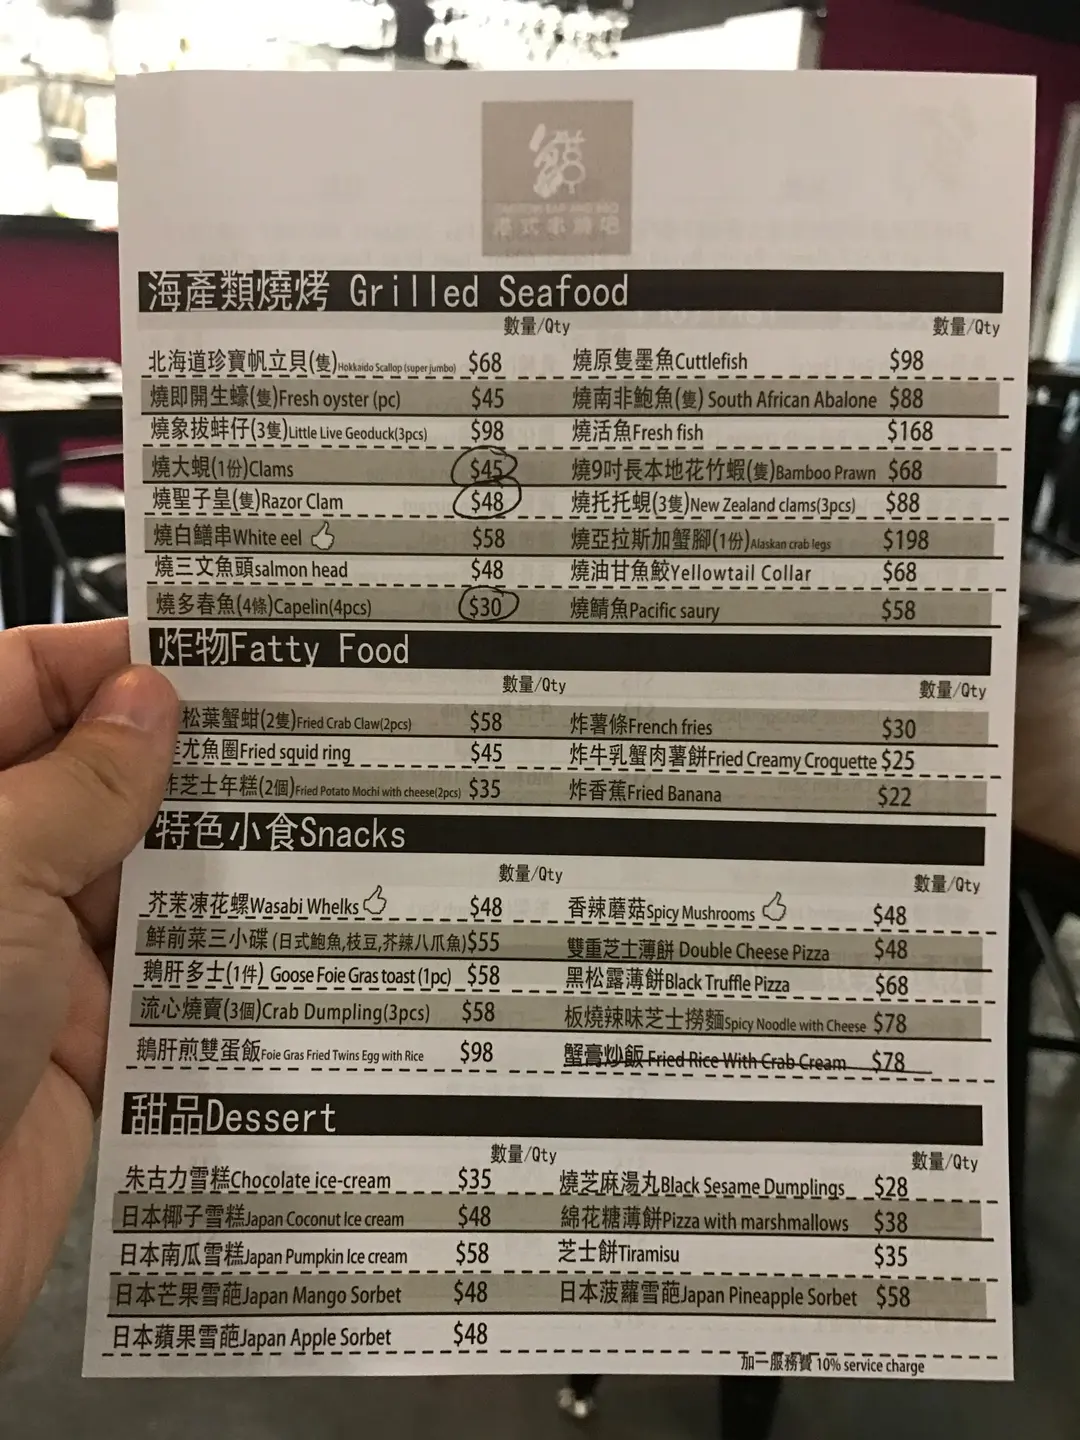 港式串燒吧
海產類燒烤 Grilled Seafood
數量/Qty 數量/Qty
北海道珍寶帆立貝(隻)Hokkaido Scallop (super jumbo) $68 燒原隻墨魚Cuttlefish $98
燒即開生蠔(隻)Fresh oyster (pc) $45 燒南非鮑魚(隻) South African Abalone $88
燒象拔蚌仔(3隻)Little Live Geoduck(3pcs) $98 燒活魚Fresh fish $168
燒大蜆(1份)Clams $45 燒9吋長本地花竹蝦(隻)Bamboo Prawn $68
燒聖子皇(隻)Razor Clam $48 燒托托蜆(3隻)New Zealand clams(3pcs) $88
燒白鱔串White eel $58 燒亞拉斯加蟹腳(1份)Alaskan crab legs $198
燒三文魚頭salmon head $48 燒油甘魚鮫Yellowtail Collar $68
燒多春魚(4條)Capelin(4pcs) $30 燒鯖魚Pacific saury $58
炸物Fatty Food
數量/Qty 數量/Qty
松葉蟹蚶(2隻)Fried Crab Claw(2pcs) $58 炸薯條French fries $30
尤魚圈Fried squid ring $45 炸牛乳蟹肉薯餅Fried Creamy Croquette $25
炸芝士年糕(2個)Fried Potato Mochi with cheese(2pcs) $35 炸香蕉Fried Banana $22
特色小食Snacks
數量/Qty 數量/Qty
芥茉凍花螺Wasabi Whelks $48 香辣蘑菇Spicy Mushrooms $48
鮮前菜三小碟 (日式鮑魚,枝豆,芥辣八爪魚)$55 雙重芝士薄餅 Double Cheese Pizza $48
鵝肝多士(1件) Goose Foie Gras toast (1pc) $58 黑松露薄餅Black Truffle Pizza $68
流心燒賣(3個)Crab Dumpling(3pcs) $58 板燒辣味芝士撈麵Spicy Noodle with Cheese $78
鵝肝煎雙蛋飯Foie Gras Fried Twins Egg with Rice $98 蟹膏炒飯 Fried Rice With Crab Cream $78
甜品Dessert
數量/Qty 數量/Qty
朱古力雪糕Chocolate ice-cream $35 燒芝麻湯丸Black Sesame Dumplings $28
日本椰子雪糕Japan Coconut Ice cream $48 綿花糖薄餅Pizza with marshmallows $38
日本南瓜雪糕Japan Pumpkin Ice cream $58 芝士餅Tiramisu $35
日本芒果雪葩Japan Mango Sorbet $48 日本菠蘿雪葩Japan Pineapple Sorbet $58
日本蘋果雪葩Japan Apple Sorbet $48
加一服務費 10% service charge